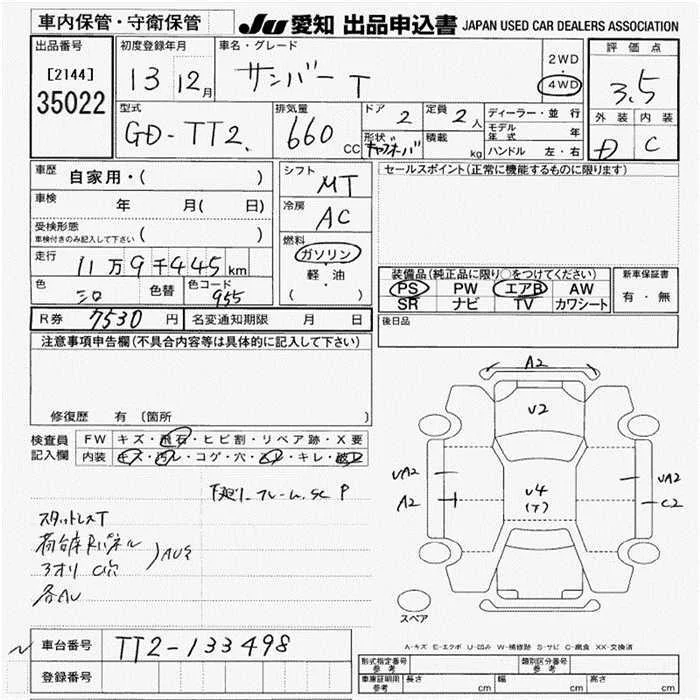 車内保管・守衛保管
JU 愛知 出品申込書 JAPAN USED CAR DEALERS ASSOCIATION
出品番号
[2144]
35022
初度登録年月
13 12月
車名・グレード
サンバー T
2WD
・
4WD
評価点
3.5
外装 内装
D C
型式
GD-TT2
排気量
660 CC
ドア 2
形状
定員 2人
積載 kg
ディーラー・並行
モデル年式 年
ハンドル 左・右
車歴 自家用・( )
車検 年 月( 日)
受検形態
車検付きのみ記入して下さい ( )
走行 11万9千445km
色 シロ 色替 色コード 955
シフト MT
冷房 AC
燃料
ガソリン
軽・油
( )
セールスポイント(正常に機能するものに限ります)
装備品(純正品に限り○をつけてください)
PS PW エアB AW
SR ナビ TV カワシート
新車保証書
有・無
R券 7530円 名変通知期限 月 日
後日品
注意事項申告欄(不具合内容等は具体的に記入して下さい)
修復歴 有 (箇所 )
検査員記入欄
FW キズ・飛石・ヒビ割・リペア跡・X要
内装 キズ・汚レ・コゲ・穴・・キレ・破レ
下廻り フレーム SC P
スタットレスT
荷台床Rパネル
アオリ C穴
AU2
各AU
A2
U2
UA2
A2
U4
(T)
UA2
C2
スペア
A-キズ E-エクボ U-凹み W-補修跡 S-サビ C-腐食 XX-交換済
車台番号 TT2-133498
登録番号
形式指定番号 参考
類別区分番号 参考
車庫証明用 参考 長さ cm 幅 cm 高さ cm